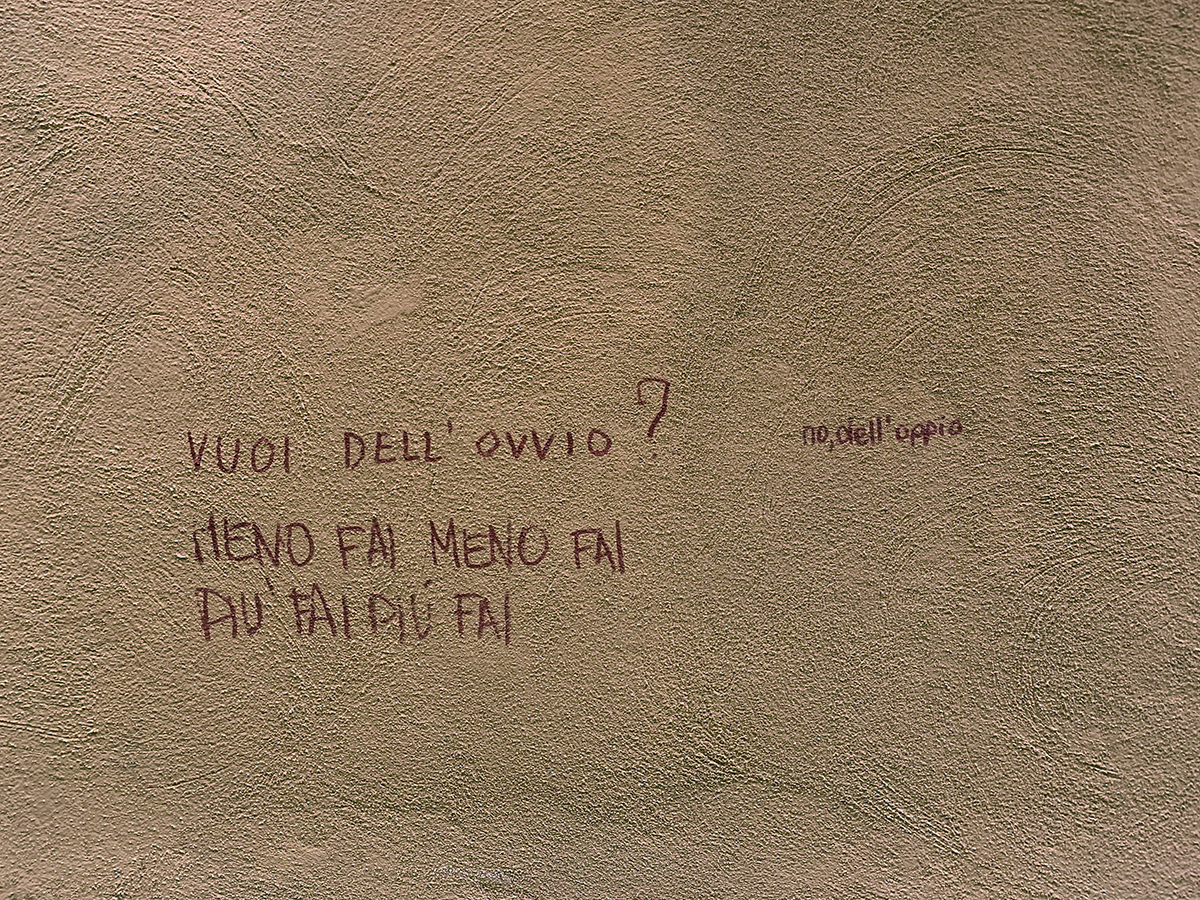 VUOI DELL' OVVIO ?
no, dell'oppio
MENO FAI MENO FAI
PIU' FAI PIÚ FAI